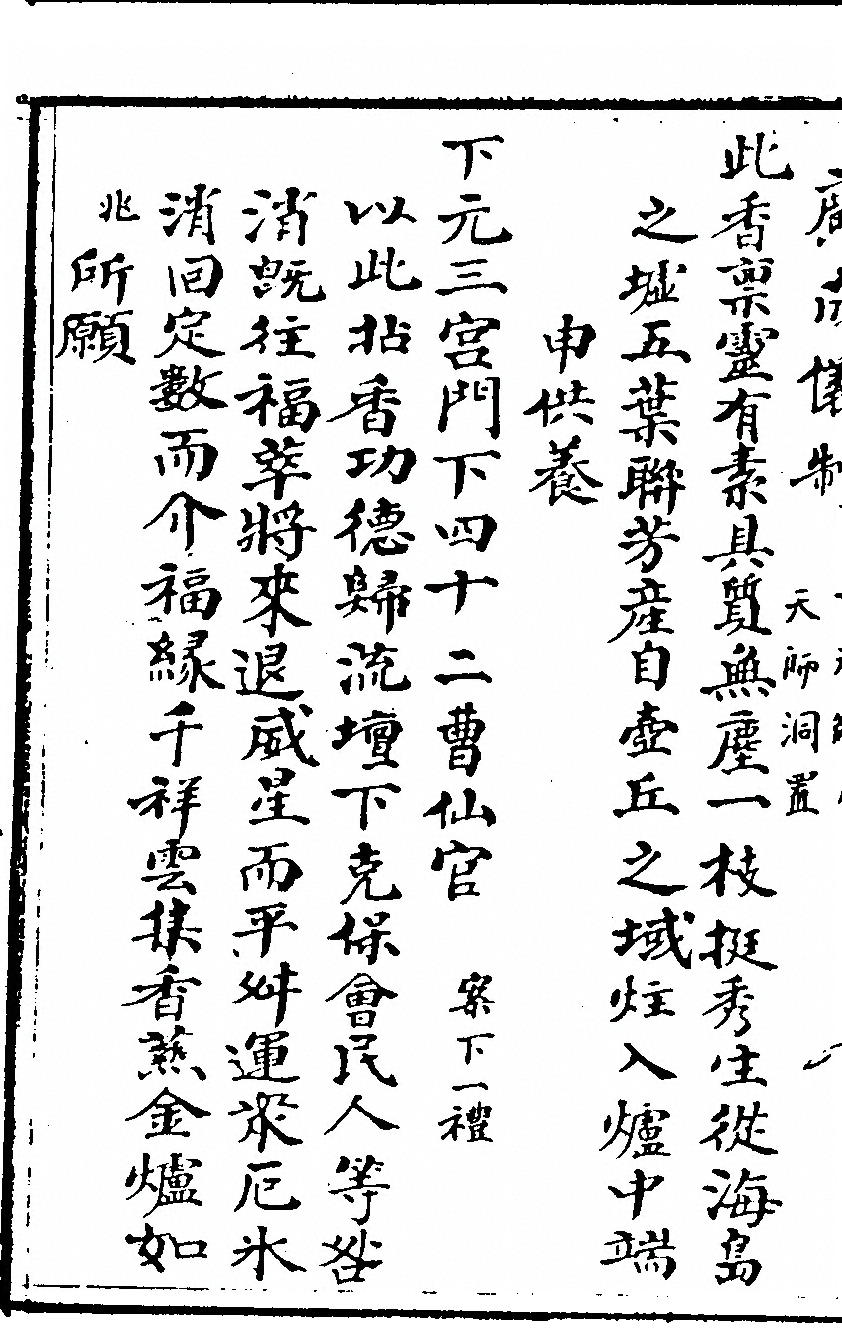 廣成儀制
天師洞置
此香禀靈有素具質無塵一枝挺秀生從海島
之墟五葉聯芳産自壺丘之域炷入爐中端
申供養
下元三宮門下四十二曹仙官 案下一禮
以此拈香功德歸流壇下克保會民人等咎
消旣往福萃將來退威星而平舛運眾厄氷
消回定數而介福緣千祥雲集香爇金爐如
兆所願